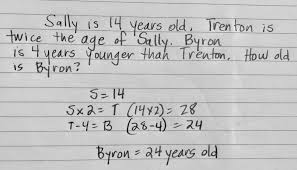 Sally is 14 years old, Trenton is
twice the age of Sally. Byron
is 4 years younger than Trenton. How old
is Byron?
S = 14
S x 2 = T (14x2) = 28
T - 4 = B (28-4) = 24
Byron = 24 years old